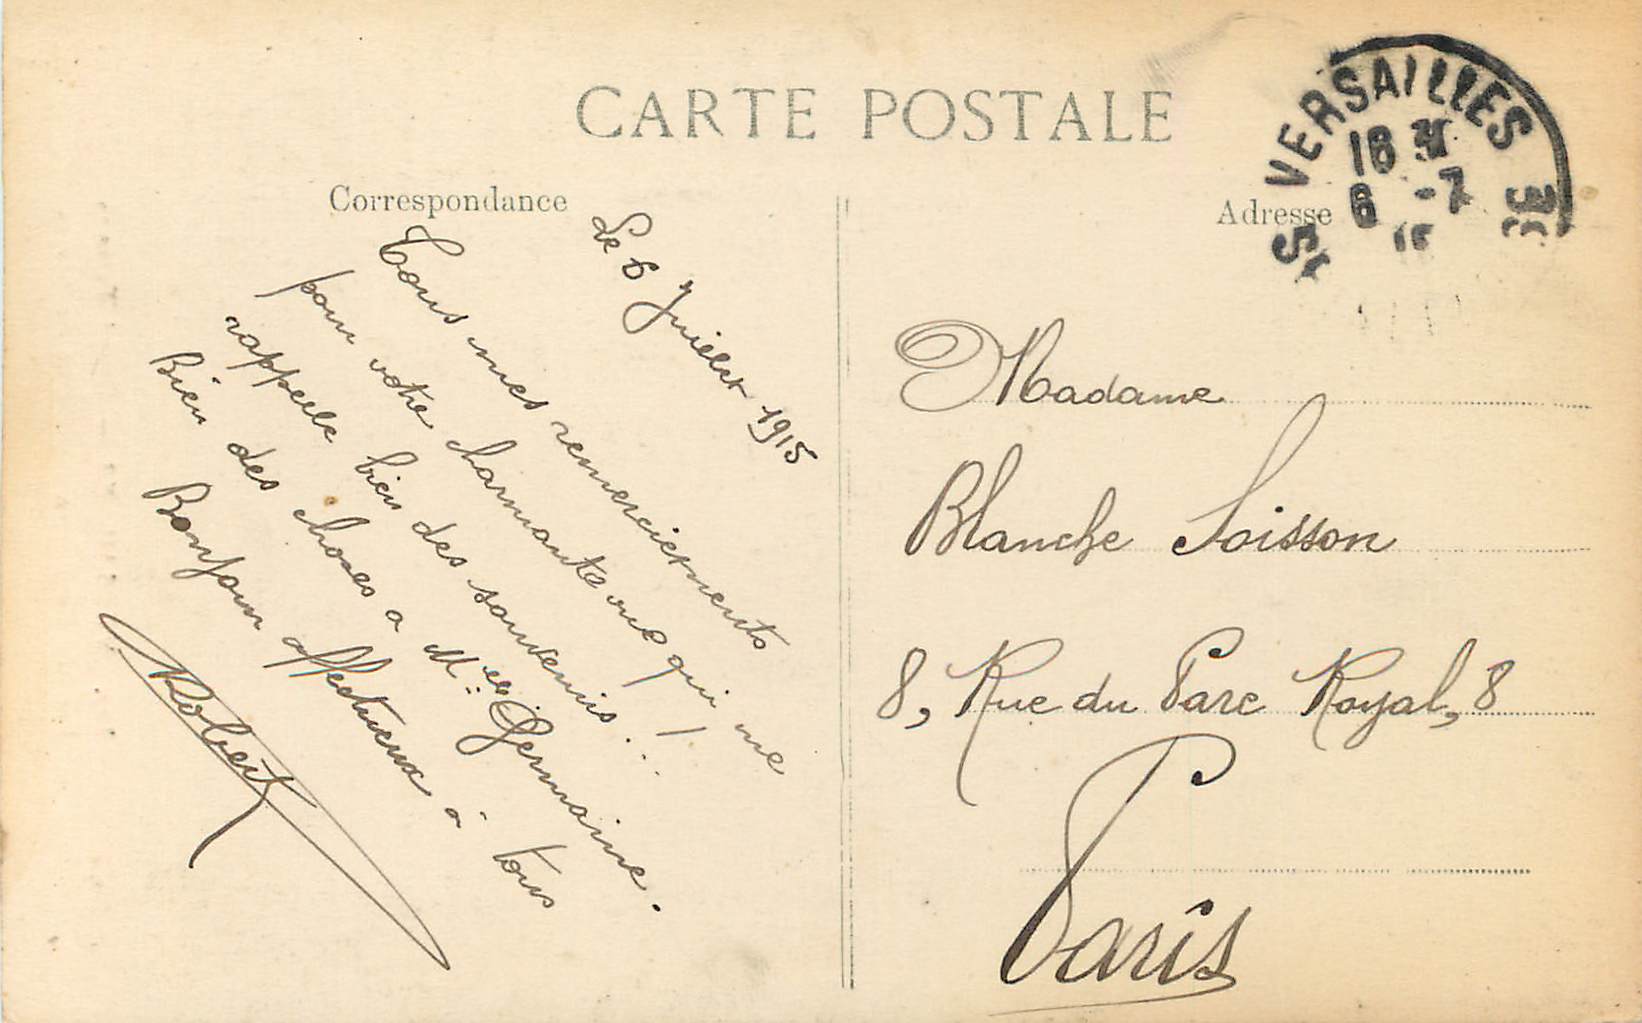 CARTE POSTALE
Correspondance
Le 6 Juillet 1915
Tous mes remerciements
pour votre charmante vue qui me
rappelle bien des souvenirs..!
Bien des choses a Melle Germaine.
Bonjour affectueux à tous
Robert
Adresse
VERSAILLES
18 30
6 -7
15
Madame
Blanche Soisson
8, Rue du Parc Royal, 8
Paris